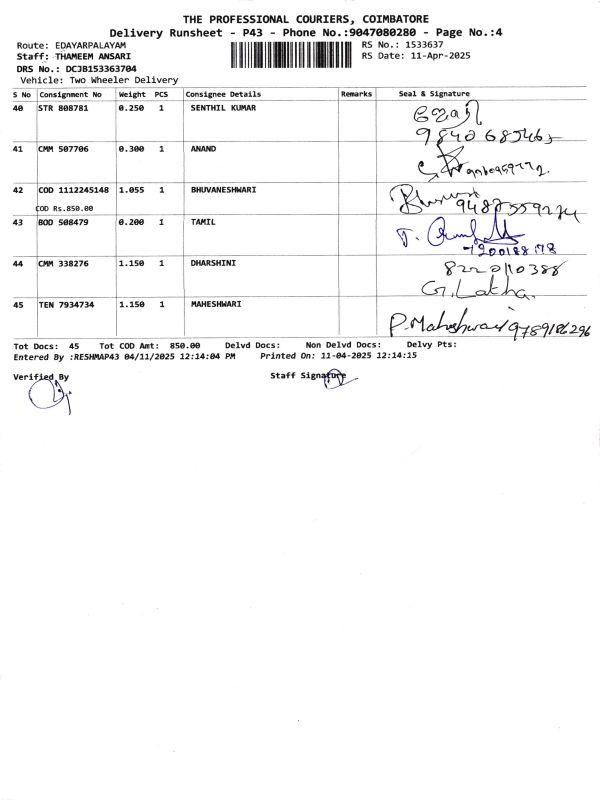 THE PROFESSIONAL COURIERS, COIMBATORE
Delivery Runsheet - P43 - Phone No.:9047080280 - Page No.:4
Route: EDAYARPALAYAM RS No.: 1533637
Staff: THAMEEM ANSARI RS Date: 11-Apr-2025
DRS No.: DCJB153363704
Vehicle: Two Wheeler Delivery
S No Consignment No Weight PCS Consignee Details Remarks Seal & Signature
40 STR 808781 0.250 1 SENTHIL KUMAR
41 CMM 507706 0.300 1 ANAND
42 COD 1112245148 1.055 1 BHUVANESHWARI
COD Rs.850.00
9487559274
43 BOD 508479 0.200 1 TAMIL
44 CMM 338276 1.150 1 DHARSHINI 8220110388
G. Latha.
45 TEN 7934734 1.150 1 MAHESHWARI
P. Maheshwari 9789186296
Tot Docs: 45 Tot COD Amt: 850.00 Delvd Docs: Non Delvd Docs: Delvy Pts:
Entered By :RESHMAP43 04/11/2025 12:14:04 PM Printed On: 11-04-2025 12:14:15
Verified By Staff Signature